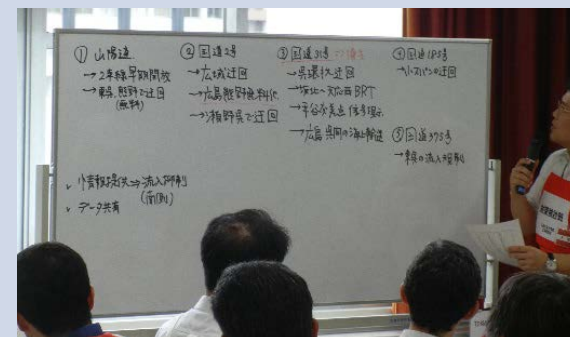 ① 山陽道
→2車線早期開放
→東呉、熊野で迂回
(無料)
② 国道2号
→広域迂回
→広島熊野無料化
→瀬野呉で迂回
③ 国道31号
→呉環状迂回
→坂北〜天応西BRT
→平谷交差点信号現示
→広島呉間の海上輸送
④ 国道185号
⑤ 国道375号
→車の流入規制
✓情報提供⇒流入抑制
✓データ共有